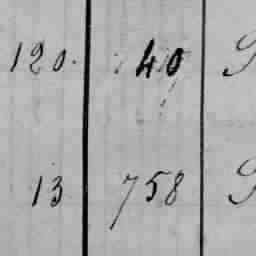 120. 40
13 758